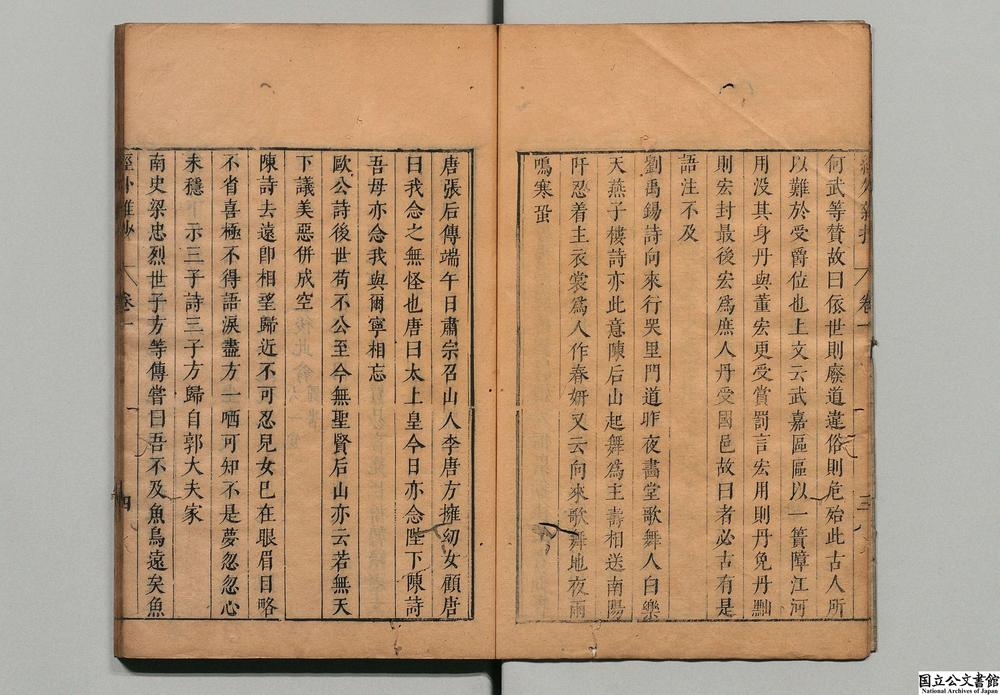 何武等賛故曰依世則廢道違俗則危殆此古人所
以難於受爵位也上文云武嘉區區以一簣障江河
用没其身丹與董宏更受賞罰言宏用則丹免丹黜
則宏封最後宏爲庶人丹受國邑故曰者必古有是
語注不及
劉禹錫詩向來行哭里門道昨夜畵堂歌舞人白樂
天燕子樓詩亦此意陳后山起舞爲主壽相送南陽
阡忍着主衣裳爲人作春妍又云向來歌舞地夜雨
鳴寒蛩
卷一
三
唐張后傳端午日肅宗召山人李唐方擁㓜女顧唐
曰我念之無怪也唐曰太上皇今日亦念陛下陳詩
吾母亦念我與爾寧相忘
歐公詩後世苟不公至今無聖賢后山亦云若無天
下議美惡併成空
陳詩去遠卽相望歸近不可忍兒女已在眼眉目略
不省喜極不得語淚盡方一哂可知不是夢忽忽心
未穩下示三子詩三子方歸自郭大夫家
南史梁忠烈世子方等傳嘗曰吾不及魚鳥遠矣魚
卷一
四
国立公文書館
National Archives of Japan